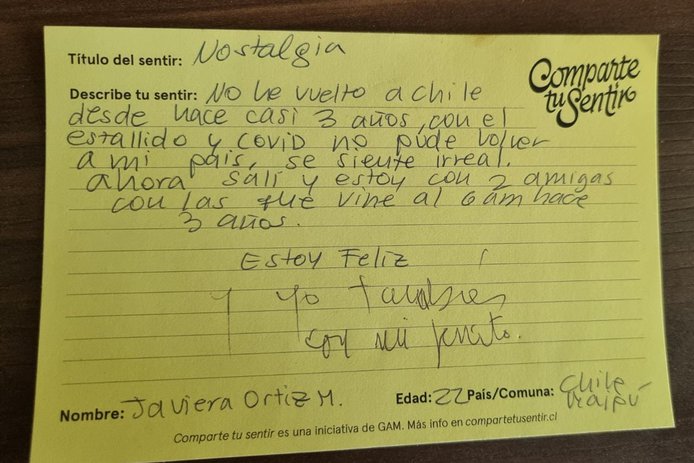 Título del sentir: Nostalgia
Comparte
tu Sentir
Describe tu sentir: No he vuelto a chile
desde hace casi 3 años, con el
estallido y covid no pude volver
a mi país, se siente irreal.
ahora salí y estoy con 2 amigas
con las que vine al Gam hace
3 años.
Estoy Feliz
y yo también
soy mi
Nombre: Javiera Ortiz M. Edad: 22 País/Comuna: Chile
Maipú
Comparte tu sentir es una iniciativa de GAM. Más info en compartetusentir.cl